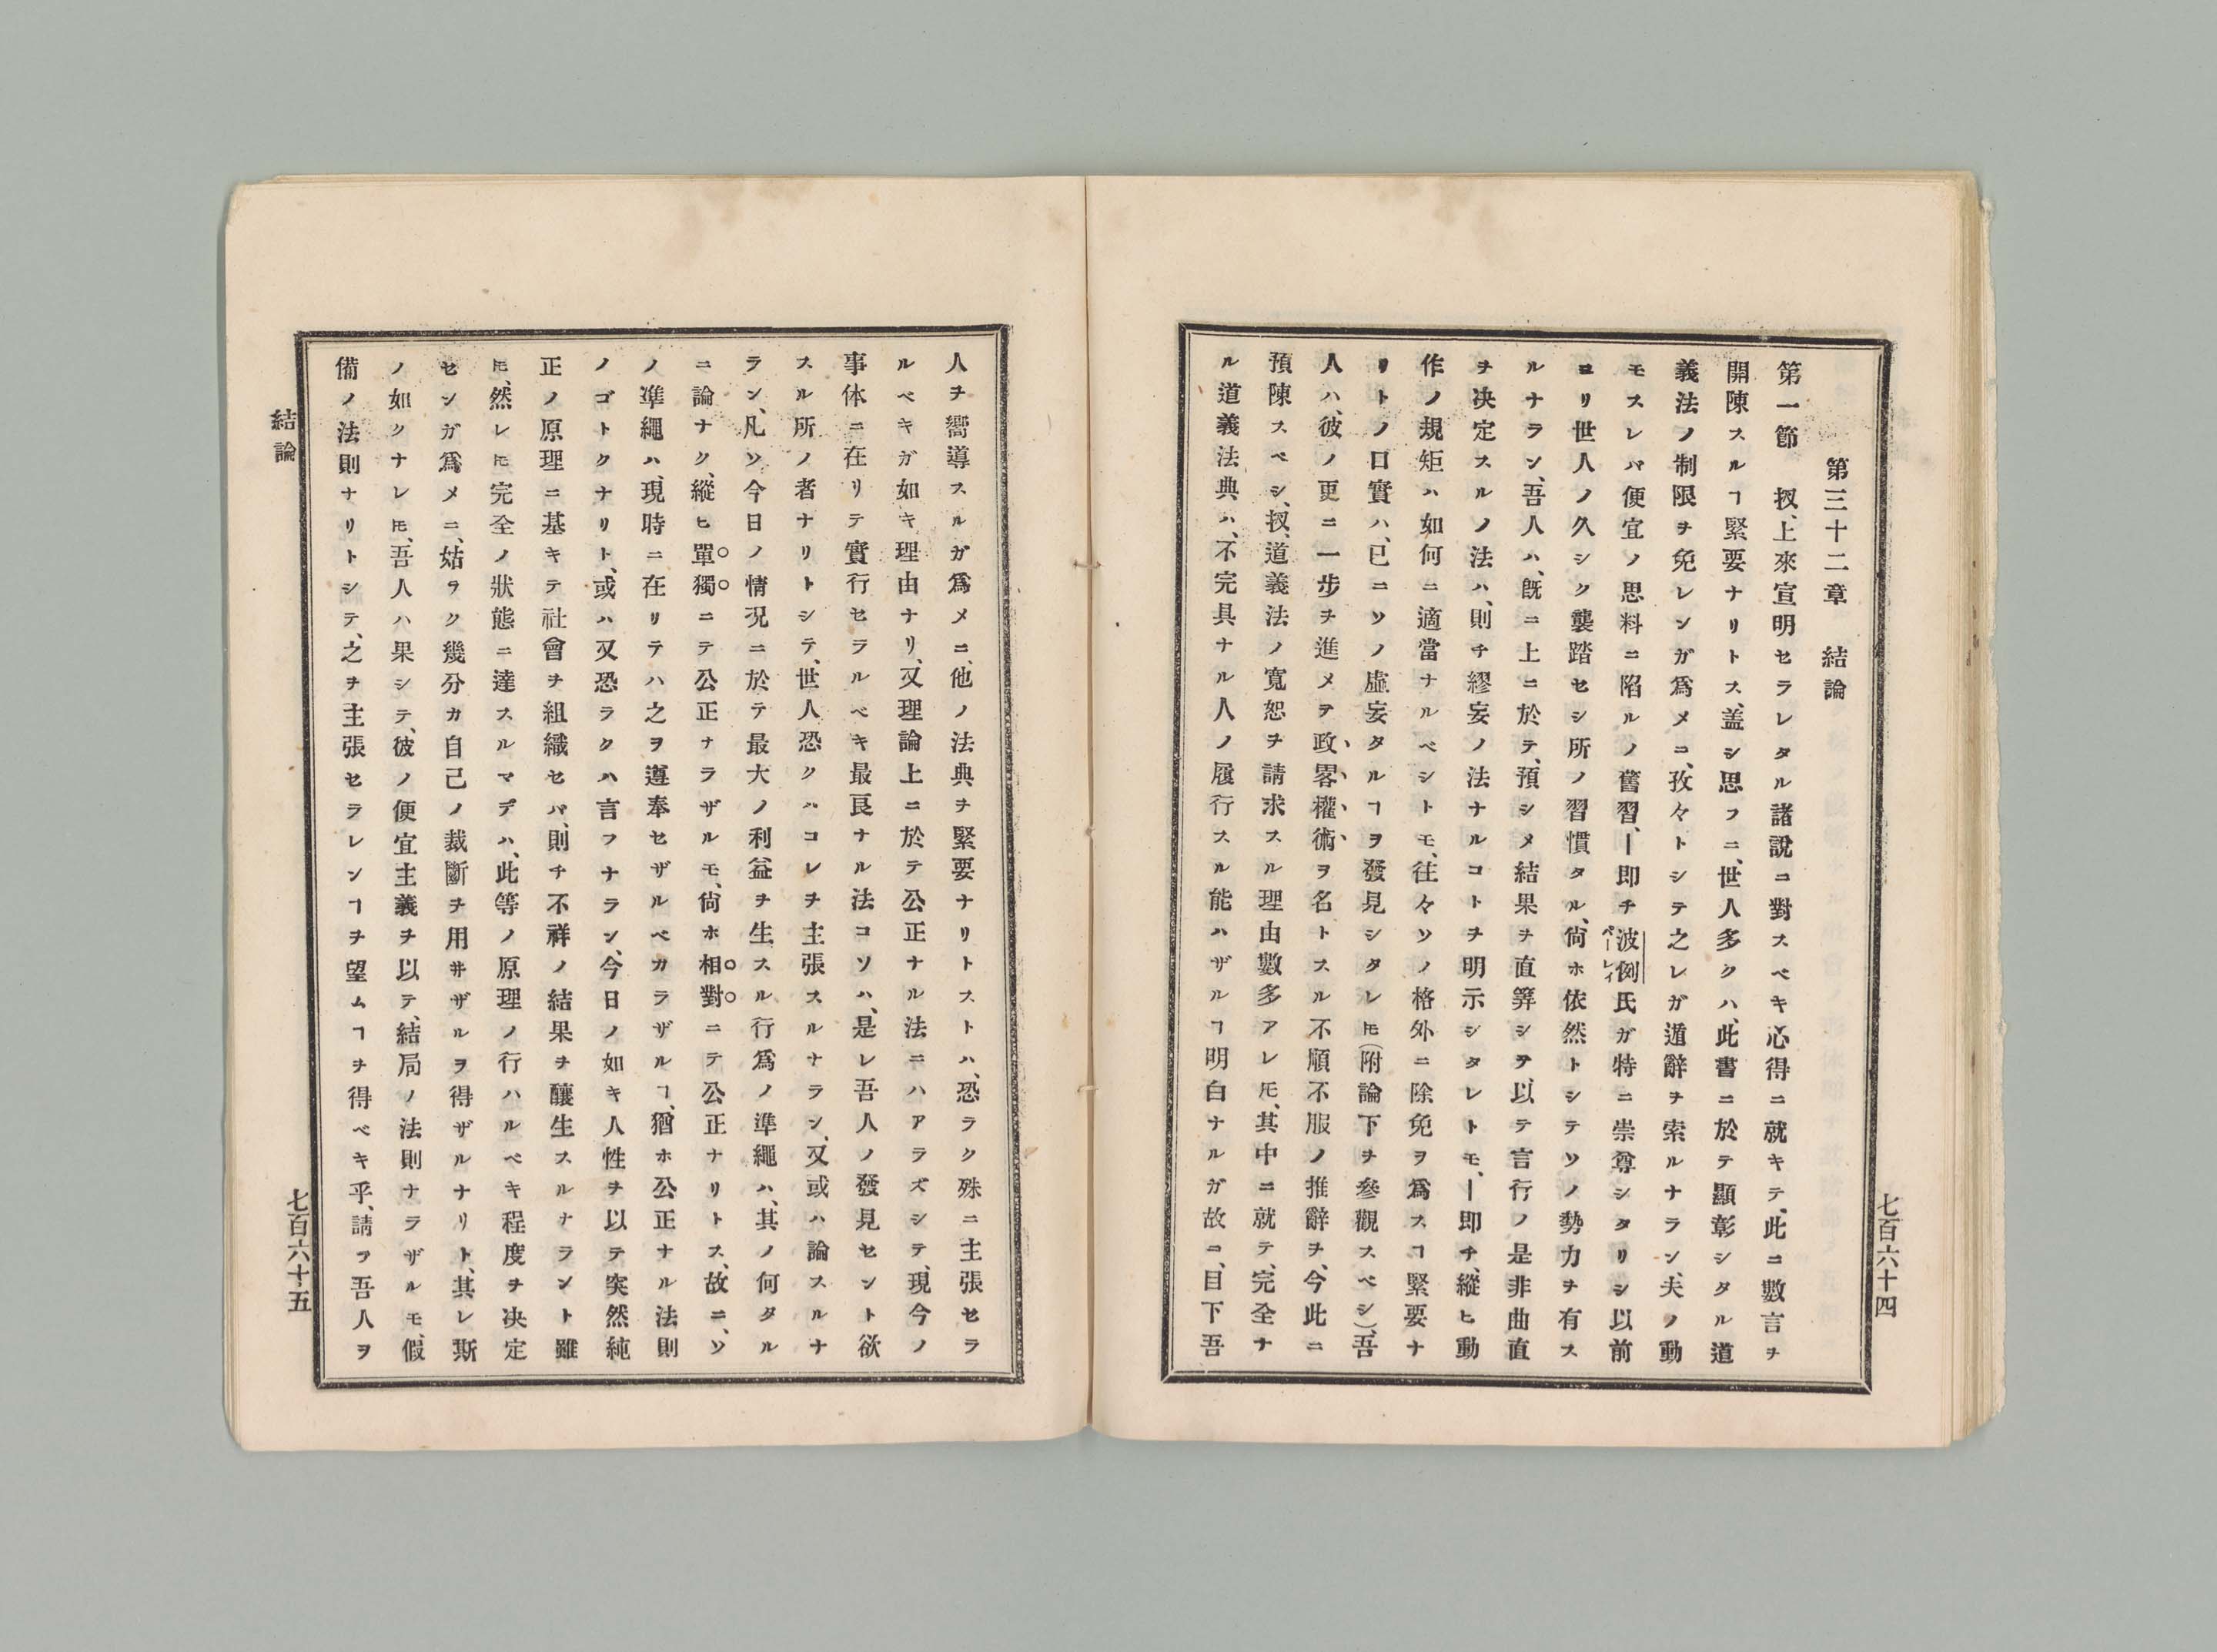 第三十二章 結論
第一節 扨、上來宣明セラレタル諸說ニ對スベキ心得ニ就キテ、此ニ數言ヲ
開陳スルヿ緊要ナリトス、盖シ思フニ、世人多クハ、此書ニ於テ顯彰シタル道
義法ノ制限ヲ免レンガ爲メニ、孜々トシテ之レガ遁辭ヲ索ルナラン、夫ノ動
モスレバ便宜ノ思料ニ陷ルノ舊習、ー即チ波例氏ガ特ニ崇尊シタリシ以前
ペーレイ
ヨリ世人ノ久シク襲踏セシ所ノ習慣タル、尙ホ依然トシテソノ勢力ヲ有ス
ルナラン、吾人ハ、旣ニ上ニ於テ、預シメ結果ヲ直筭シヲ以テ言行ノ是非曲直
ヲ决定スルノ法ハ、則チ繆妄ノ法ナルコトヲ明示シタレトモ、ー即チ、縱ヒ動
作ノ規矩ハ如何ニ適當ナルベシトモ、往々ソノ格外ニ除免ヲ爲スヿ緊要ナ
リトノ口實ハ、已ニソノ虛妄タルヿヲ發見シタレ𪜈(附論下ヲ參觀スベシ)、吾
人ハ、彼ノ更ニ一步ヲ進メヲ政畧權術ヲ名トスル不順不服ノ推辭ヲ、今此ニ
預陳スベシ、扨、道義法ノ寬恕ヲ請求スル理由數多アレ𪜈、其中ニ就テ、完全ナ
ル道義法典ハ、不完具ナル人ノ履行スル能ハザルヿ明白ナルガ故ニ、目下吾
七百六十四
人ヲ嚮導スルガ爲メニ、他ノ法典ヲ緊要ナリトストハ、恐ラク殊ニ主張セラ
ルベキガ如キ理由ナリ、又理論上ニ於テ公正ナル法ニハアラズシテ、現今ノ
事体ニ在リテ實行セラルベキ最良ナル法コソハ、是レ吾人ノ發見セント欲
スル所ノ者ナリトシテ、世人恐クハコレヲ主張スルナラン、又或ハ論スルナ
ラン、凡ソ今日ノ情况ニ於テ最大ノ利益ヲ生スル行爲ノ準繩ハ、其ノ何タル
ニ論ナク、縱ヒ單獨ニテ公正ナラザルモ、尙ホ相對ニテ公正ナリトス、故ニ、ソ
ノ準繩ハ、現時ニ在リテハ之ヲ遵奉セザルベカラザルヿ、猶ホ公正ナル法則
ノゴトクナリト、或ハ又恐ラクハ言フナラン、今日ノ如キ人性ヲ以テ突然純
正ノ原理ニ基キテ社會ヲ組織セバ、則チ不祥ノ結果ヲ釀生スルナラント雖
𪜈、然レ𪜈完全ノ狀態ニ達スルマデハ、此等ノ原理ノ行ハルベキ程度ヲ决定
センガ爲メニ、姑ラク幾分カ自己ノ裁斷ヲ用井ザルヲ得ザルナリト、其レ斯
ノ如クナレ𪜈、吾人ハ果シテ、彼ノ便宜主義ヲ以テ、結局ノ法則ナラザルモ、假
備ノ法則ナリトシテ、之ヲ主張セラレンヿヲ望ムヿヲ得ベキ乎、請フ吾人ヲ
結論
七百六十五